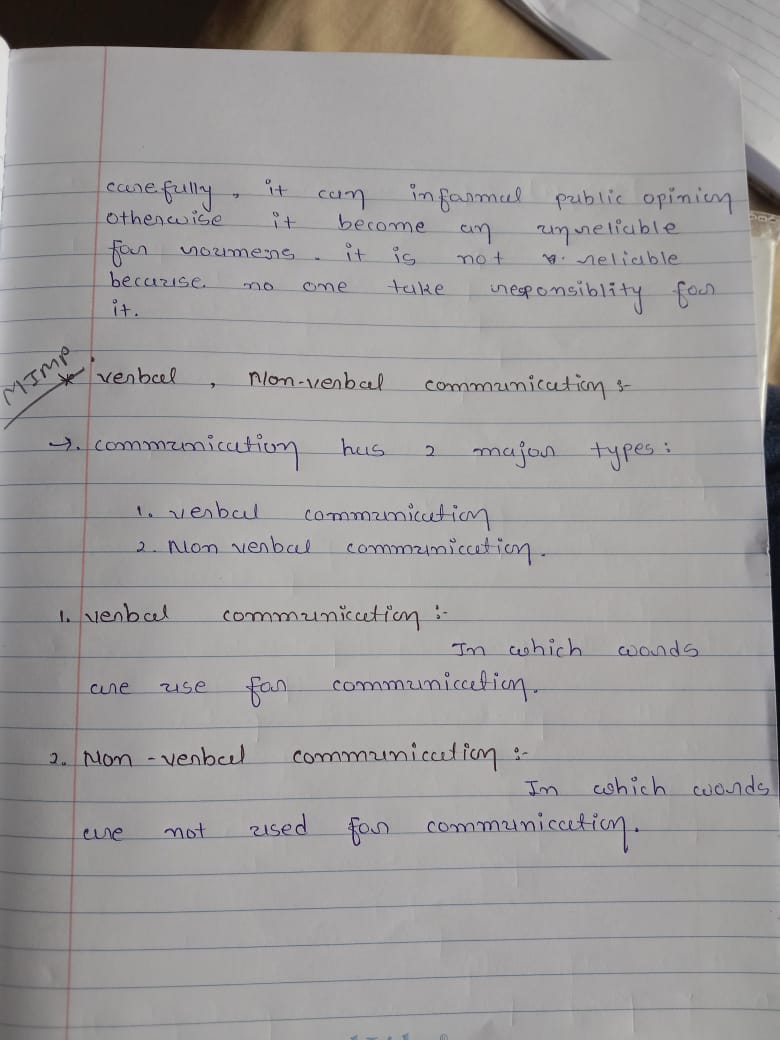 carefully, it can informal public opinion
otherwise it become an unreliable
for
. it is not reliable
because no one take responsiblity for
it.
MIMP * verbal, Non-verbal communication :-
→. communication has 2 major types :
1. verbal communication
2. Non verbal communication.
1. verbal communication :-
In which words
are use for communication.
2. Non-verbal communication :-
In which words
are not used for communication.